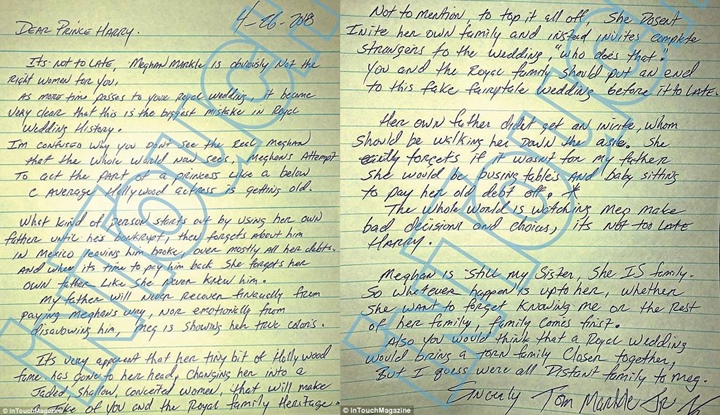 4-26-2018
DEAR PRINCE HARRY.
Its not to LATE, Meghan Markle is obviously Not the
Right women for you.
As more time passes to your Royal wedding, it became
very clear that this is the biggest mistake in Royal
Wedding History.
Im confused why you don't see the real Meghan
that the whole world now sees. Meghans Attempt
To act the part of a princess Like a below
C AVERAGE Hollywood actress is getting old.
What kind of person starts out by using her own
father until he's bankrupt, then forgets about him
in Mexico leaving him broke, over mostly all her debts.
And when its time to pay him back she forgets her
own father like she never knew him.
My father will never recover financially from
paying Meghan's way, Nor emotionally from
disavowing him, Meg is showing her true colors.
It's very apparent that her tiny bit of Hollywood
fame has gone to her head, Changing her into a
Jaded, shallow, conceited women, that will make
of you and the Royal family Heritage.
© InTouchMagazine
Not to mention, to top it all off, She Dosent
Invite her own family and instead invites complete
strangers to the wedding, "who does that."
You and the Royal family should put an end
to this fake fairytale wedding before it to LATE.
Her own father didn't get an invite, whom
should be walking her down the asle. She
forgets if it wasnt for my father
She would be busing tables and baby sitting
to pay her old debt off.
The whole world is watching Meg make
bad decisions and choices, its NOT too LATE
Harry.
Meghan is still my Sister, She IS family.
So whatever happen is up to her, whether
She want to forget knowing me or the Rest
of her family, family comes first.
Also you would think that a Royal wedding
would bring a torn family closer together,
But I guess were all Distant family to Meg.
Sincerly Tom Markle Jr
© InTouchMagazine
InTouch
InTouch